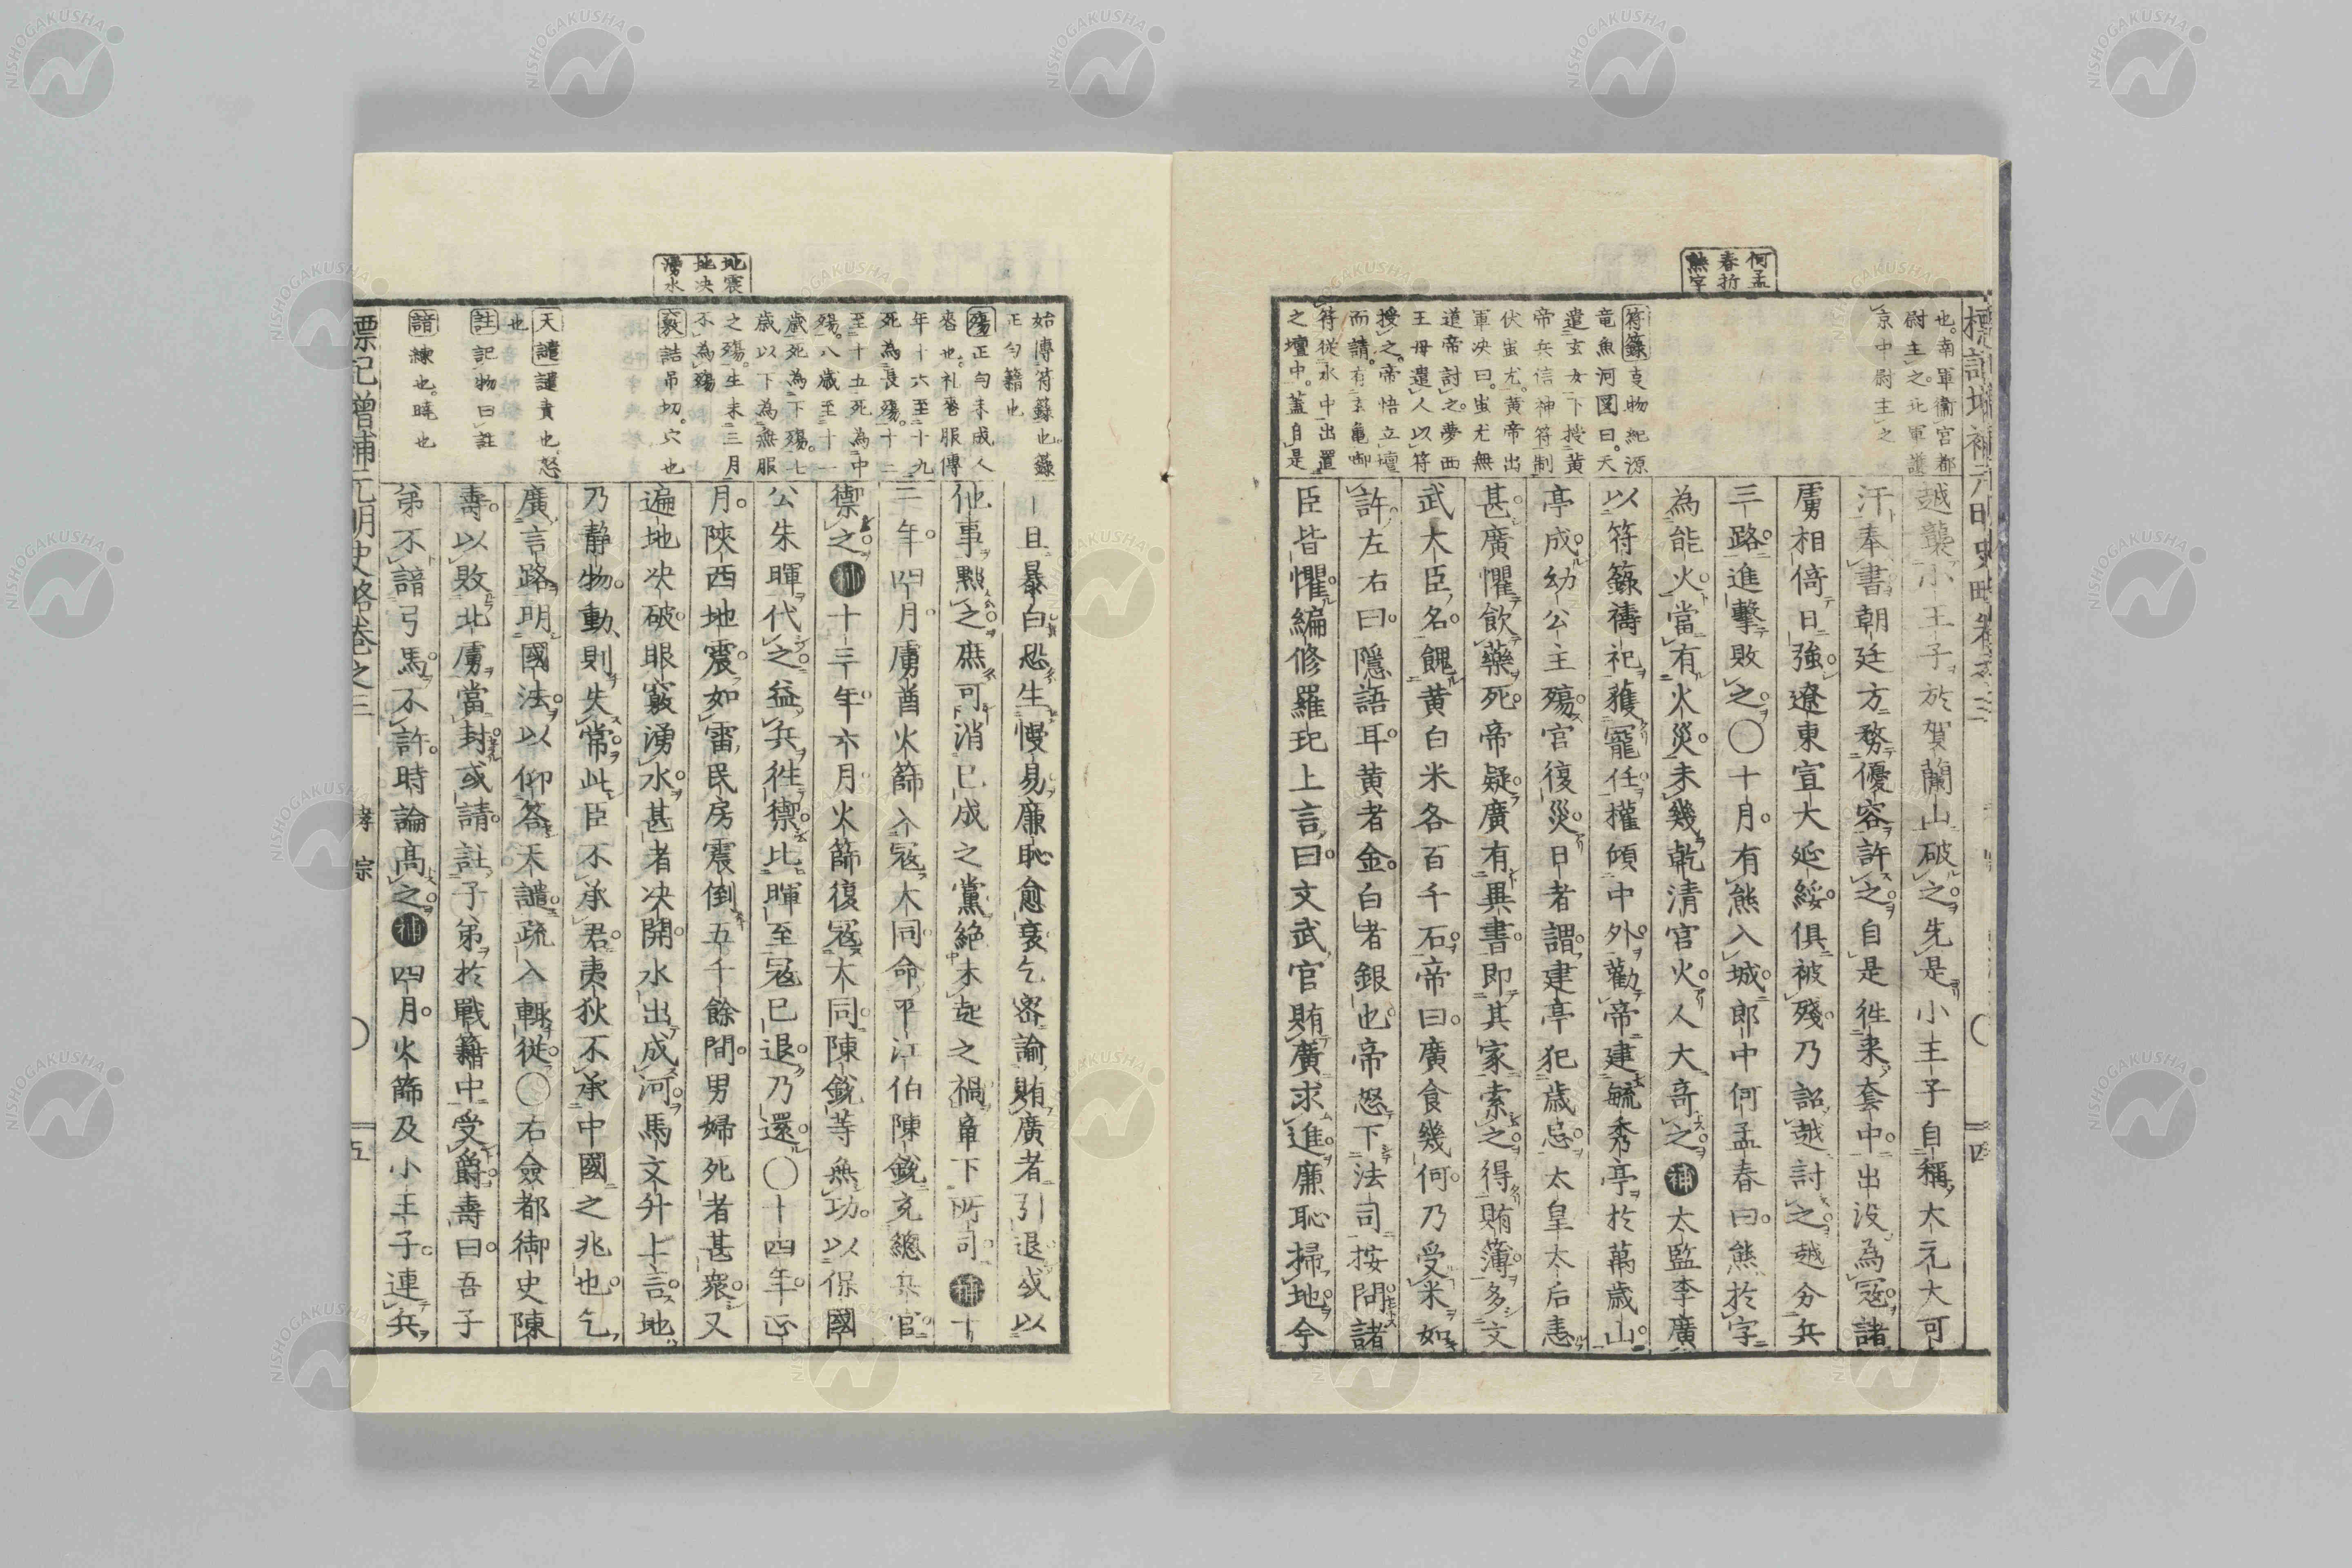 標記增補元明史略卷之三
四
何孟
春折
熊字
也。南軍衞宮都
尉主之。北軍護
京中尉主之
符籙事物紀源
竜魚河図曰。天
遣玄女下授黄
帝兵信神符制
伏蚩尤。黄帝出
軍决曰。蚩尤無
道帝討之。夢西
王母遣人以符
授之。帝悟立壇
而請。有玄亀啣
符從水中出置
之壇中。蓋自是
越襲小王子於賀蘭山破之先是小王子自稱大元大可
汗奉書朝廷方務優容許之自是徃来套中出没為冦諸
虜相倚日強遼東宣大延綏俱被殘乃詔越討之越分兵
三路進擊敗之〇十月有熊入城郎中何孟春曰熊於字
為能火當有火災未幾乾清宮火人大奇之神太監李廣
以符籙禱祀獲寵任權傾中外勸帝建毓秀亭於萬歳山
亭成幼公主殤宮復災日者謂建亭犯歳忌太皇太后恚
甚廣懼飲藥死帝疑廣有異書即其家索之得賄簿多文
武大臣名餽黄白米各百千石帝曰廣食幾何乃受米如
許左右曰隱語耳黄者金白者銀也帝怒下法司按問諸
臣皆懼編修羅玘上言曰文武官賄廣求進廉恥掃地今
地震
地决
湧水
始傳符籙也。籙
正勻籍也
殤正勻未成人
喪也。礼喪服傳
年十六至十九
死為長殤。十二
至十五死為中
殤。八歳至十一
歳死為下殤。七
歳以下為無服
之殤。生未三月
不為殤
竅詰吊切。穴也
天譴譴責也。怒
也
註記物曰註
諳練也。暁也
一旦暴白恐生慢易廉恥愈衰乞密諭賄廣者引退或以
他事黙之庶可消已成之黨絶未起之禍章下所司神十
三年四月虜酋火篩入冦大同命平江伯陳鋭充總兵官
禦之神十三年六月火篩復冦大同陳鋭等無功以保國
公朱暉代之益兵徃禦比暉至冦已退乃還〇十四年正
月陝西地震如雷民房震倒五千餘間男婦死者甚衆又
遍地决破眼竅湧水甚者决開水出成河馬文升上言地
乃静物動則失常此臣不承君夷狄不承中國之兆也乞
廣言路明國法以仰答天譴疏入輙從〇右僉都御史陳
壽以敗北虜當封或請註子弟於戰籍中受爵壽曰吾子
弟不諳弓馬不許時論高之神四月火篩及小王子連兵
標記增補元明史略卷之三
孝宗
五